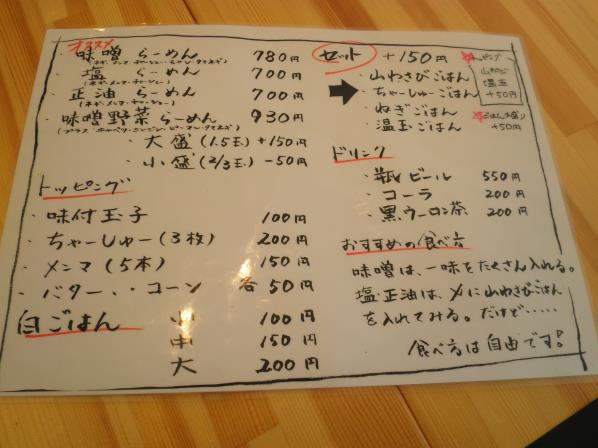 オススメ
・味噌らーめん 780円
・塩らーめん 700円
・正油らーめん 700円
・味噌野菜らーめん 930円
(プラス キャベツ・ニンジン・ピーマン・タマネギ)
・大盛(1.5玉) +150円
・小盛(2/3玉) -50円
トッピング
・味付玉子 100円
・ちゃーしゅー(3枚) 200円
・メンマ(5本) 150円
・バター・・コーン 各50円
白ごはん 小 100円
中 150円
大 200円
セット +150円
・山わさびごはん
・ちゃーしゅーごはん
・ねぎごはん
・温玉ごはん
ッピング
山わさび
温玉
+50円
ごはん大盛り
+50円
ドリンク
・瓶ビール 550円
・コーラ 200円
・黒ウーロン茶 200円
おすすめの食べ方
味噌は、一味をたくさん入れる。
塩・正油は、〆に山わさびごはん
を入れてみる。だけど‥‥‥
食べ方は自由です!